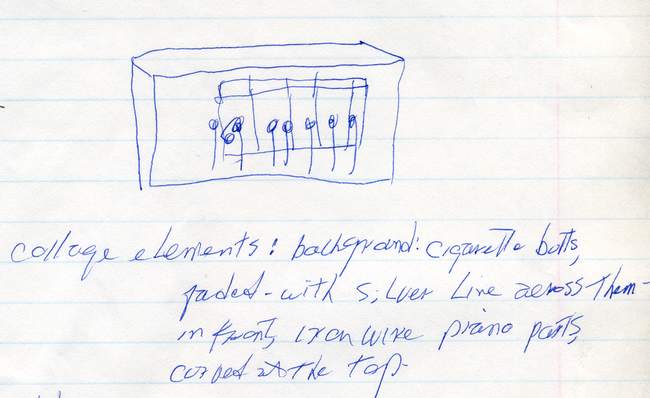 collage elements: background: cigarette butts,
faded - with silver line across them -
in front, iron wire piano parts,
curved at the top -